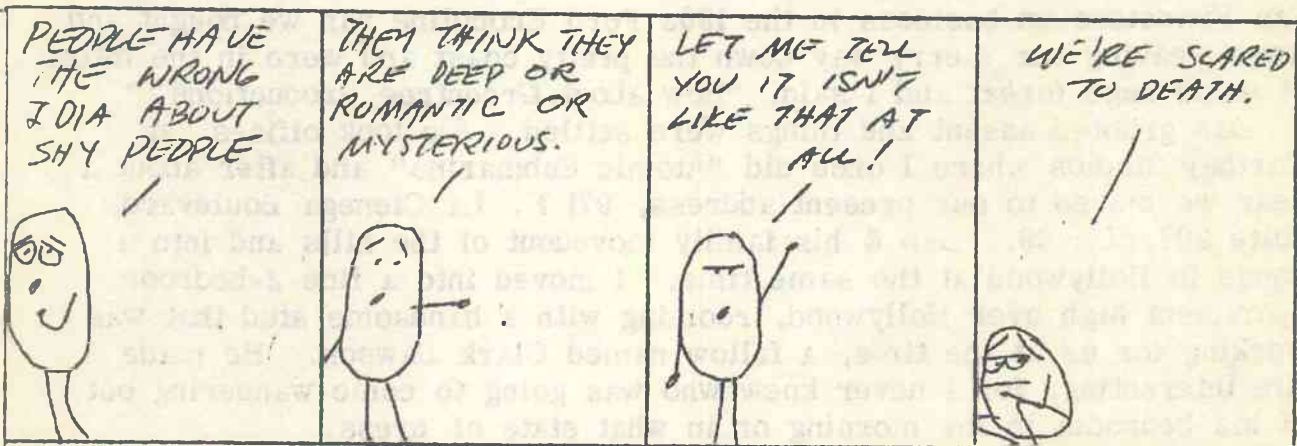 PEOPLE HAVE
THE WRONG
IDIA ABOUT
SHY PEOPLE
THEY THINK THEY
ARE DEEP OR
ROMANTIC OR
MYSTERIOUS.
LET ME TELL
YOU IT ISN'T
LIKE THAT AT
ALL!
WE'RE SCARED
TO DEATH.